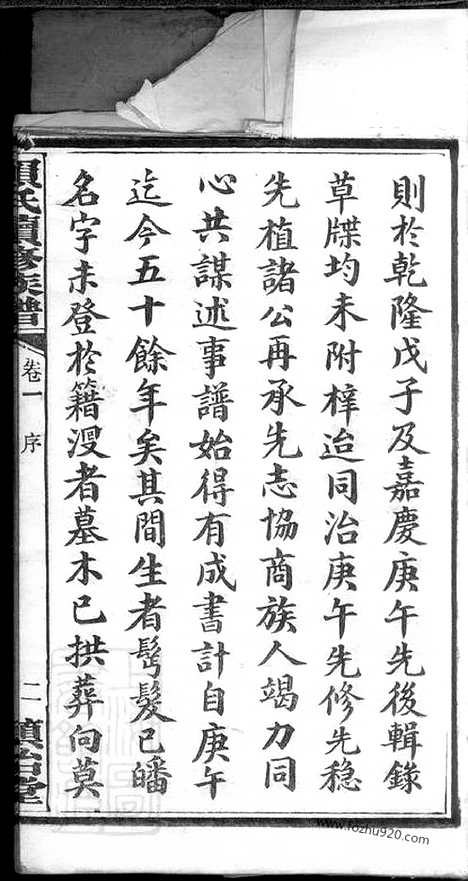 則於乾隆戊子及嘉慶庚午先後輯錄
草牒均未附梓迨同治庚午先修先穩
先植諸公再承先志協商族人竭力同
心共謀述事譜始得有成書計自庚午
迄今五十餘年矣其間生者髫髮已皤
名字未登於籍沒者墓木已拱葬向莫
氏續修族譜
卷一
序
二
堂
www.fozhu920.com